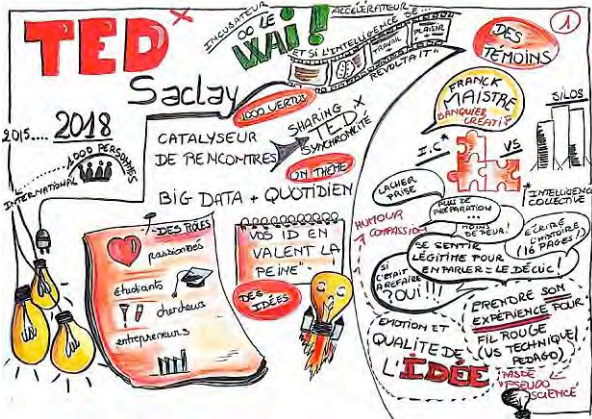 TEDX
Saclay
2015.... 2018
1000 PERSONNES
INTERNATIONAL
INCUBATEUR
OÙ LE
WAI!
ACCÉLÉRATEUR
ET SI L'INTELLIGENCE
TRAVAIL
PLAISIR
RÉVOLTAIT"
1000 VERTUS
CATALYSEUR
DE RENCONTRES
SHARING X
TED
SYNCHRONICITÉ
ON THÈME
BIG DATA + QUOTIDIEN
DES RÔLES
passionnés
étudiants
chercheurs
entrepreneurs
VOS ID EN
VALENT LA
PEINE"
DES
IDÉES
1
DES
TÉMOINS
FRANCK
MAISTRE
BANQUIER
CRÉATIF
I.C*
VS
SILOS
*INTELLIGENCE
COLLECTIVE
LACHER
PRISE
PLUS DE
PRÉPARATION
...
MOINS
DE PEUR!
ÉCRIRE
L'HISTOIRE
(16 PAGES!)
HUMOUR
COMPASSION
SE SENTIR
LÉGITIME POUR
EN PARLER = LE DÉCLIC!
SI
C'ÉTAIT
À REFAIRE
? OUI!!!
ÉMOTION ET
QUALITÉ DE
L'IDÉE
PRENDRE SON
EXPÉRIENCE POUR
FIL ROUGE
(VS TECHNIQUE/
PEDAGO)
PAS DE
"PSEUDO
SCIENCE"